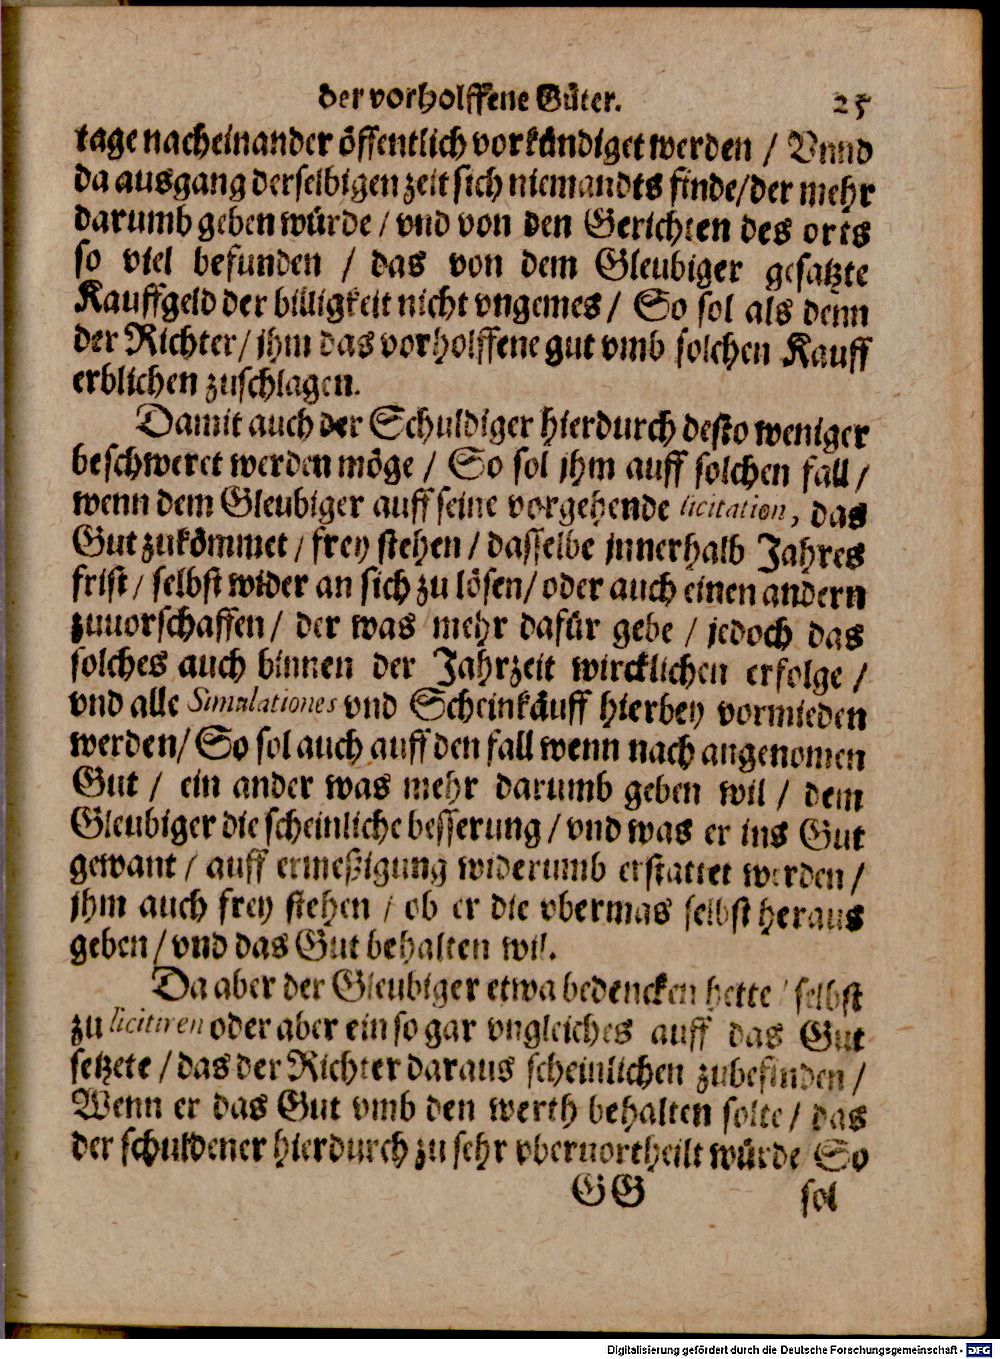 der vorholffene Güter. 25
tage nacheinander öffentlich vorkündiget werden / Vnnd
da ausgang derselbigen zeit sich niemandts finde/der mehr
darumb geben würde / vnd von den Gerichten des orts
so viel befunden / das von dem Gleubiger gesatzte
Kauffgeld der billigkeit nicht vngemes / So sol als denn
der Richter/ jhm das vorholffene gut vmb solchen Kauff
erblichen zuschlagen.
Damit auch der Schuldiger hierdurch desto weniger
beschweret werden möge / So sol jhm auff solchen fall /
wenn dem Gleubiger auff seine vorgehende licitation, das
Gut zukömmet / frey stehen / dasselbe jnnerhalb Jahres
frist / selbst wider an sich zu lösen/ oder auch einen andern
zuuorschaffen / der was mehr dafür gebe / jedoch das
solches auch binnen der Jahrzeit wircklichen erfolge /
vnd alle Simulationes vnd Scheinkäuff hierbey vormieden
werden/ So sol auch auff den fall wenn nach angenomen
Gut / ein ander was mehr darumb geben wil / dem
Gleubiger die scheinliche besserung / vnd was er ins Gut
gewant / auff ermeßigung widerumb erstattet werden /
jhm auch frey stehen / ob er die vbermas selbst heraus
geben / vnd das Gut behalten wil.
Da aber der Gleubiger etwa bedencken hette / selbst
zu licitiren oder aber ein so gar vngleiches auff das Gut
setzete / das der Richter daraus scheinlichen zubefinden /
Wenn er das Gut vmb den werth behalten solte / das
der schuldener hierdurch zu sehr vberuortheilt würde So
GG sol
Digitalisierung gefördert durch die Deutsche Forschungsgemeinschaft - DFG